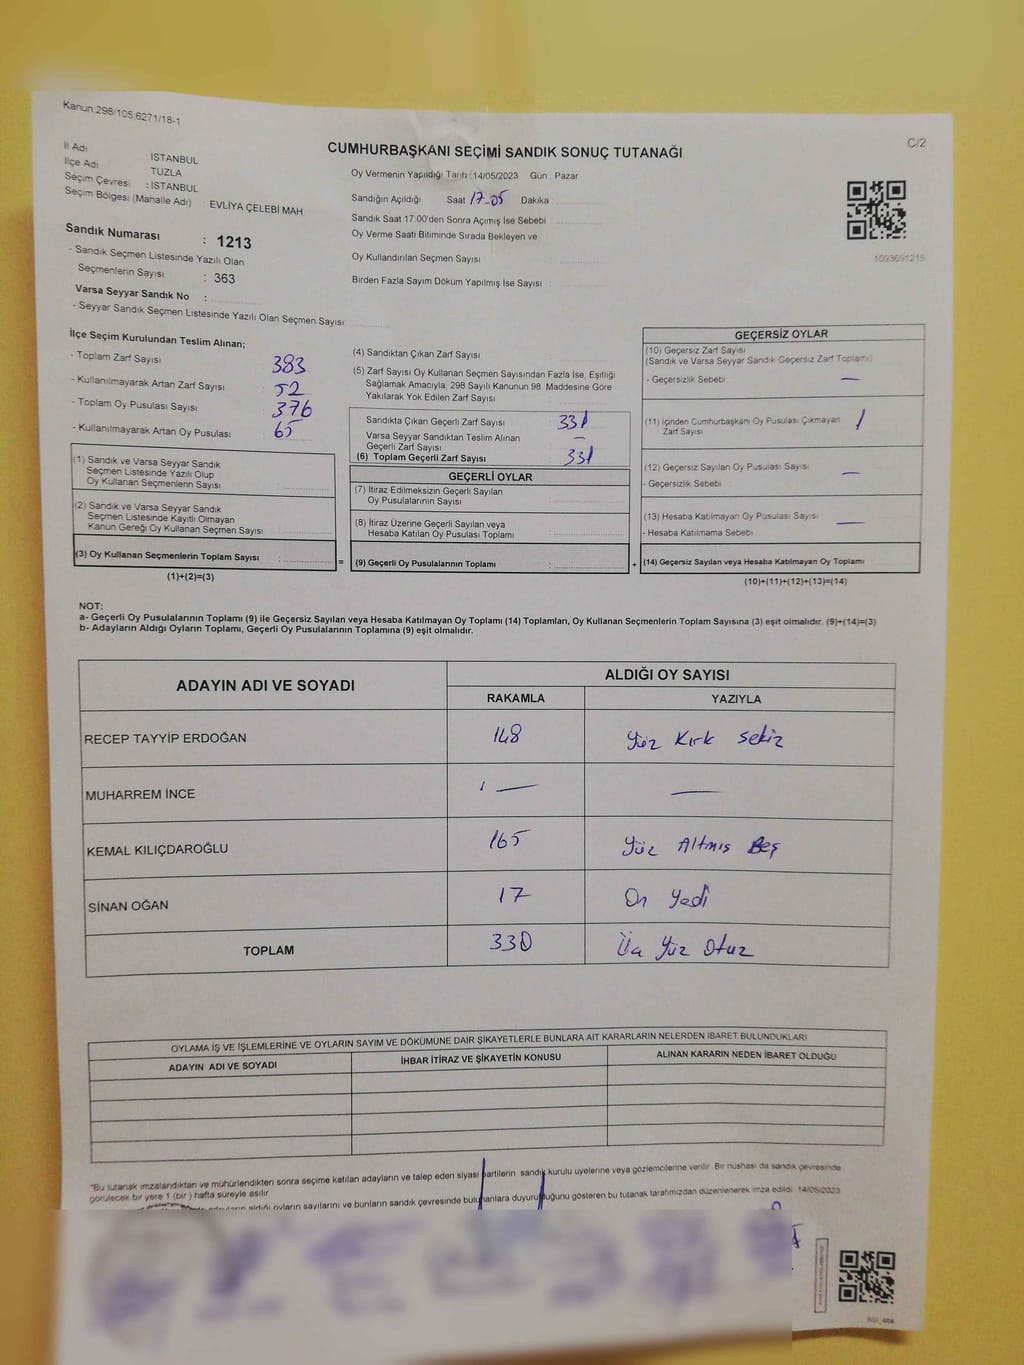 Kanun:298/105,6271/18-1
C/2
CUMHURBAŞKANI SEÇİMİ SANDIK SONUÇ TUTANAĞI
İl Adı : İSTANBUL
İlçe Adı TUZLA
Seçim Çevresi : İSTANBUL
Seçim Bölgesi (Mahalle Adı) : EVLİYA ÇELEBİ MAH
Sandık Numarası : 1213
- Sandık Seçmen Listesinde Yazılı Olan
Seçmenlerin Sayısı : 363
Varsa Seyyar Sandık No :
- Seyyar Sandık Seçmen Listesinde Yazılı Olan Seçmen Sayısı
Oy Vermenin Yapıldığı Tarih :14/05/2023 Gün Pazar
Sandığın Açıldığı Saat 17.05 Dakika
Sandık Saat 17:00'den Sonra Açılmış İse Sebebi
Oy Verme Saati Bitiminde Sırada Bekleyen ve
Oy Kullandırılan Seçmen Sayısı
Birden Fazla Sayım Döküm Yapılmış İse Sayısı
1093691215
İlçe Seçim Kurulundan Teslim Alınan;
- Toplam Zarf Sayısı 383
- Kullanılmayarak Artan Zarf Sayısı 52
- Toplam Oy Pusulası Sayısı 376
- Kullanılmayarak Artan Oy Pusulası 65
(1) Sandık ve Varsa Seyyar Sandık
Seçmen Listesinde Yazılı Olup
Oy Kullanan Seçmenlerin Sayısı
(2) Sandık ve Varsa Seyyar Sandık
Seçmen Listesinde Kayıtlı Olmayan
Kanun Gereği Oy Kullanan Seçmen Sayısı
(3) Oy Kullanan Seçmenlerin Toplam Sayısı : =
(1)+(2)=(3)
(4) Sandıktan Çıkan Zarf Sayısı
(5) Zarf Sayısı Oy Kullanan Seçmen Sayısından Fazla İse, Eşitliği
Sağlamak Amacıyla, 298 Sayılı Kanunun 98. Maddesine Göre
Yakılarak Yok Edilen Zarf Sayısı
Sandıkta Çıkan Geçerli Zarf Sayısı 331
Varsa Seyyar Sandıktan Teslim Alınan
Geçerli Zarf Sayısı —
(6) Toplam Geçerli Zarf Sayısı 331
GEÇERLİ OYLAR
(7) İtiraz Edilmeksizin Geçerli Sayılan
Oy Pusulalarının Sayısı
(8) İtiraz Üzerine Geçerli Sayılan veya
Hesaba Katılan Oy Pusulası Toplamı
(9) Geçerli Oy Pusulalarının Toplamı : +
GEÇERSİZ OYLAR
(10) Geçersiz Zarf Sayısı
(Sandık ve Varsa Seyyar Sandık Geçersiz Zarf Toplamı)
- Geçersizlik Sebebi —
(11) İçinden Cumhurbaşkanı Oy Pusulası Çıkmayan
Zarf Sayısı 1
(12) Geçersiz Sayılan Oy Pusulası Sayısı —
- Geçersizlik Sebebi
(13) Hesaba Katılmayan Oy Pusulası Sayısı —
- Hesaba Katılmama Sebebi
(14) Geçersiz Sayılan veya Hesaba Katılmayan Oy Toplamı
(10)+(11)+(12)+(13)=(14)
NOT:
a- Geçerli Oy Pusulalarının Toplamı (9) ile Geçersiz Sayılan veya Hesaba Katılmayan Oy Toplamı (14) Toplamları, Oy Kullanan Seçmenlerin Toplam Sayısına (3) eşit olmalıdır. (9)+(14)=(3)
b- Adayların Aldığı Oyların Toplamı, Geçerli Oy Pusulalarının Toplamına (9) eşit olmalıdır.
ADAYIN ADI VE SOYADI ALDIĞI OY SAYISI
RAKAMLA YAZIYLA
RECEP TAYYİP ERDOĞAN 148 Yüz Kırk Sekiz
MUHARREM İNCE — —
KEMAL KILIÇDAROĞLU 165 Yüz Altmış Beş
SİNAN OĞAN 17 On Yedi
TOPLAM 330 Üç Yüz Otuz
OYLAMA İŞ VE İŞLEMLERİNE VE OYLARIN SAYIM VE DÖKÜMÜNE DAİR ŞİKAYETLERLE BUNLARA AİT KARARLARIN NELERDEN İBARET BULUNDUKLARI
ADAYIN ADI VE SOYADI İHBAR İTİRAZ VE ŞİKAYETİN KONUSU ALINAN KARARIN NEDEN İBARET OLDUĞU
*Bu tutanak imzalandıktan ve mühürlendikten sonra seçime katılan adayların ve talep eden siyasi partilerin sandık kurulu üyelerine veya gözlemcilerine verilir. Bir nüshası da sandık çevresinde
görülecek bir yere 1 (bir ) hafta süreyle asılır.
aldığı oyların sayılarını ve bunların sandık çevresinde bulunanlara duyurulduğunu gösteren bu tutanak tarafımızdan düzenlenerek imza edildi. 14/05/2023